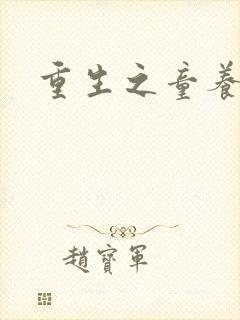 重生之童養
趙寶軍